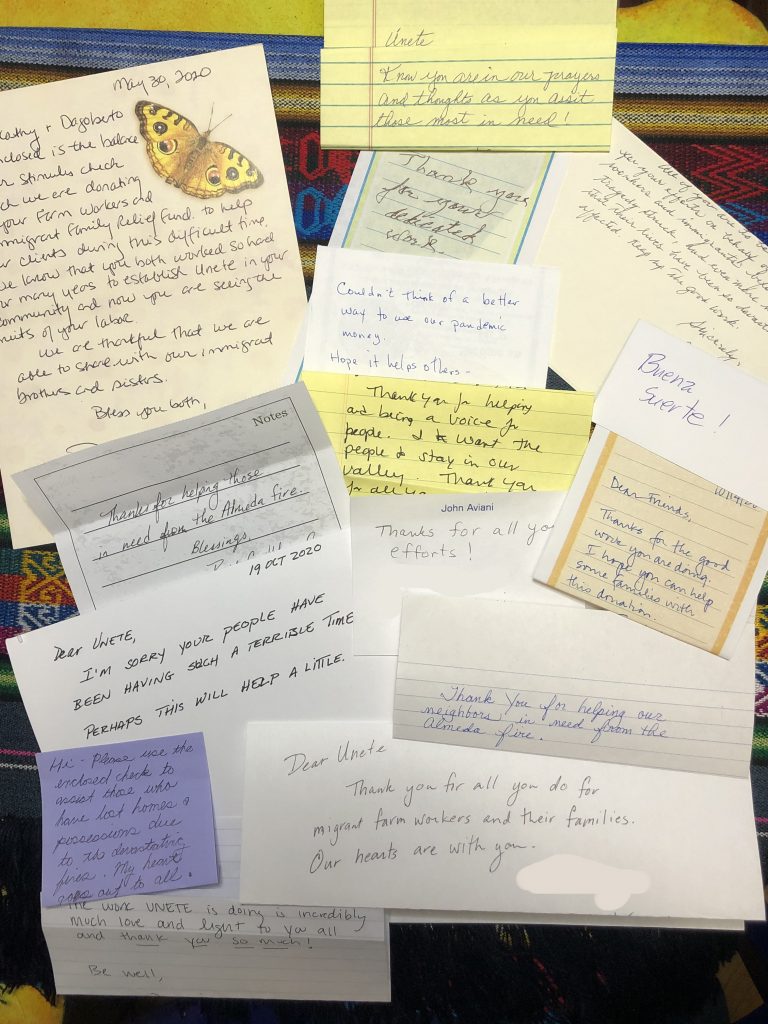 May 30, 2020
Kathy + Dagoberto
enclosed is the balance
stimulus check
we are donating
your Farm workers and
Immigrant Family Relief Fund. to help
clients during this difficult time.
we know that you both worked so hard
many years to establish Unete in your
community and now you are seeing the
fruits of your labor.
We are thankful that we are
able to share with our immigrant
brothers and sisters.
Bless you both,
Unete
Know you are in our prayers
and thoughts as you assist
those most in need!
Thank you
for your
dedicated
work.
all of you are
your efforts on behalf of
workers and immigrants
tragedy struck, and even more
that their lives have been so
affected. Keep up the good work.
Sincerely,
Couldn't think of a better
way to use our pandemic
money.
Hope it helps others-
Buena
Suerte!
Thank you for helping
and being a voice for
people. I want the
people to stay in our
valley. Thank you
for all yo
Notes
Thanks for helping those
in need from the Almeda fire.
Blessings,
John Aviani
Thanks for all yo
efforts!
Dear Friends,
Thanks for the good
work you are doing.
I hope you can help
some families with
this donation.
19 OCT 2020
Dear UNETE,
I'M SORRY YOUR PEOPLE HAVE
BEEN HAVING SUCH A TERRIBLE TIME
PERHAPS THIS WILL HELP A LITTLE.
Thank You for helping our
neighbors in need from the
Almeda fire.
Hi- Please use the
enclosed check to
assist those who
have lost homes &
possessions due
to the devastating
fires. My heart
goes out to all.
Dear Unete
Thank you for all you do for
migrant farm workers and their families.
Our hearts are with you.
The work UNETE is doing is incredibly
much love and light to you all
and thank you so much!
Be well,